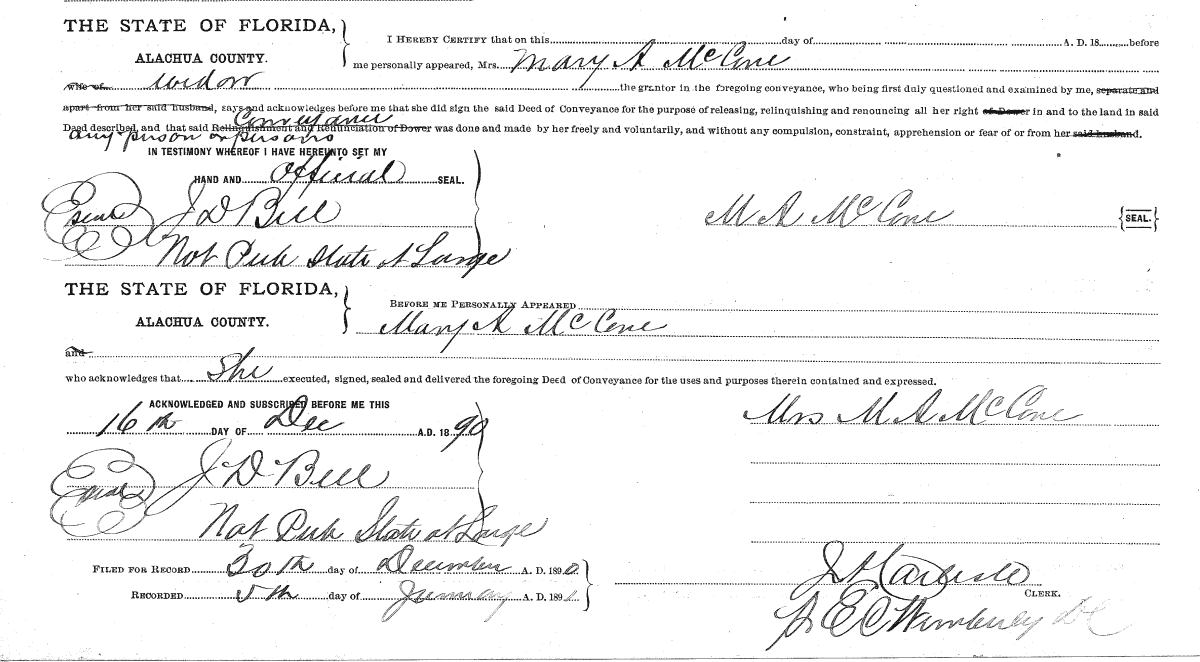 THE STATE OF FLORIDA,
ALACHUA COUNTY.
I HEREBY CERTIFY that on this day of A. D. 18 before
me personally appeared, Mrs. Mary A McCone
wife of widow the grantor in the foregoing conveyance, who being first duly questioned and examined by me, separate and
apart from her said husband, says and acknowledges before me that she did sign the said Deed of Conveyance for the purpose of releasing, relinquishing and renouncing all her right of Dower in and to the land in said
Conveyance
Deed described, and that said Relinquishment and Renunciation of Dower was done and made by her freely and voluntarily, and without any compulsion, constraint, apprehension or fear of or from her said husband.
any person or persons
IN TESTIMONY WHEREOF I HAVE HEREUNTO SET MY
HAND AND official SEAL.
Seal J D Bell
M A McCone {SEAL.}
Not Pub State at Large
THE STATE OF FLORIDA,
ALACHUA COUNTY.
BEFORE ME PERSONALLY APPEARED
Mary A McCone
and
who acknowledges that She executed, signed, sealed and delivered the foregoing Deed of Conveyance for the uses and purposes therein contained and expressed.
ACKNOWLEDGED AND SUBSCRIBED BEFORE ME THIS
Mrs M A McCone
16th DAY OF Dec A.D. 18 90
J D Bell
Not Pub State at Large
FILED FOR RECORD 30th day of December A. D. 1890
RECORDED 5th day of January A. D. 189
CLERK.